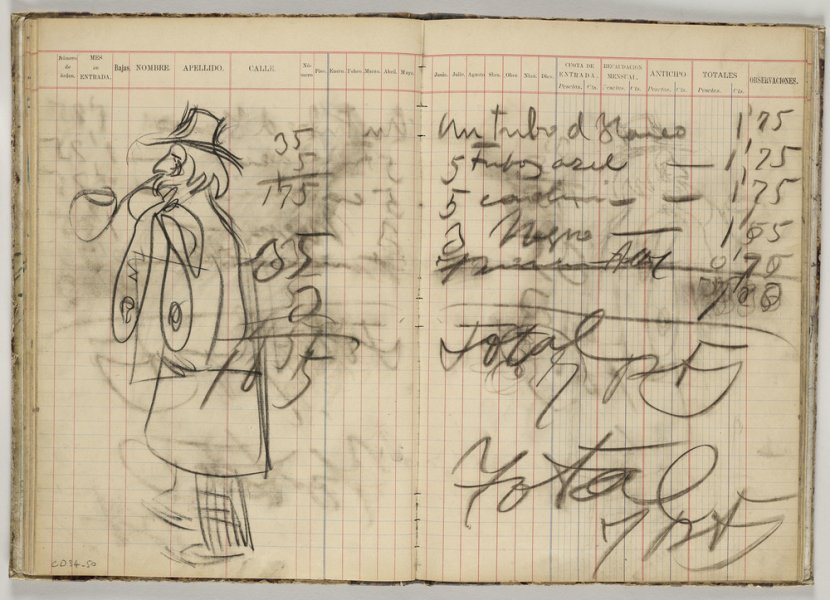 Número de órden. MES de ENTRADA. Bajas. NOMBRE. APELLIDO. CALLE. Número Piso. Enero. Febro. Marzo. Abril. Mayo.
35
5
175
35
3
105
CD34-50
Junio. Julio. Agosto Sbre. Obre. Nbre. Dbre. CUOTA DE ENTRADA. Pesetas. Cts. RECAUDACION MENSUAL. Cts. ANTICIPO Pesetas. Cts. TOTALES Pesetas. Cts. OBSERVACIONES.
Un tubo d blanco 1'75
5 tubos azul — 1'75
5 — — 1'75
3 Negro — 1'05
0'70
Total 7 pts
Total
7 pts